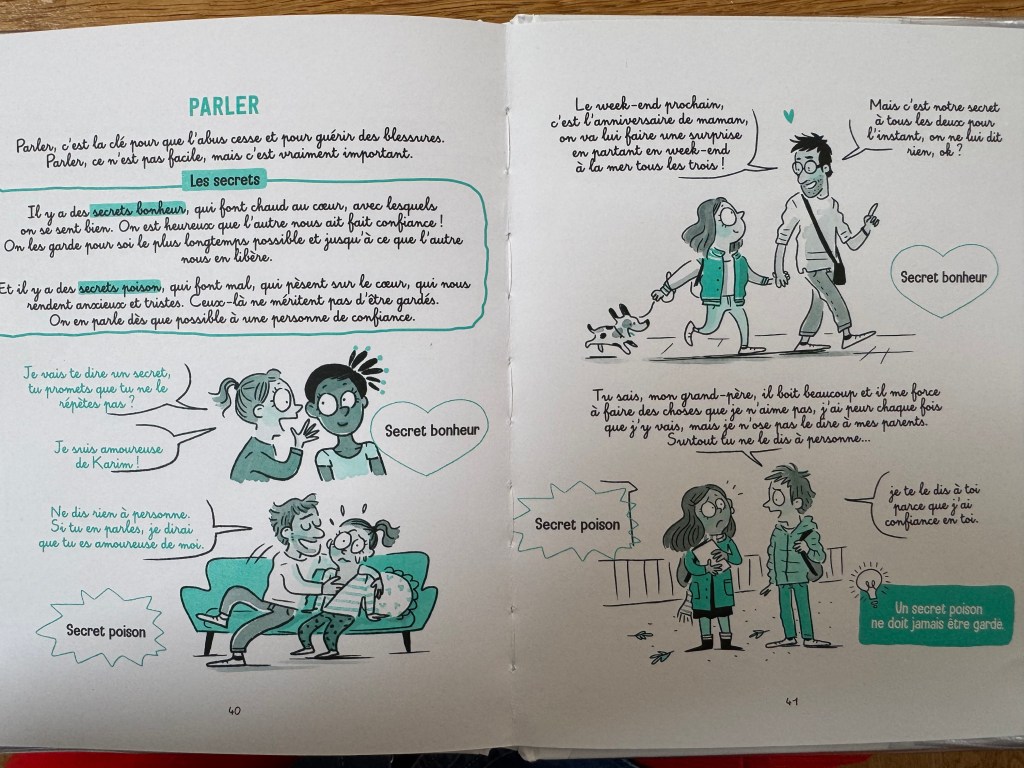 PARLER
Parler, c'est la clé pour que l'abus cesse et pour guérir des blessures.
Parler, ce n'est pas facile, mais c'est vraiment important.
Les secrets
Il y a des secrets bonheur, qui font chaud au cœur, avec lesquels
on se sent bien. On est heureux que l'autre nous ait fait confiance !
On les garde pour soi le plus longtemps possible et jusqu'à ce que l'autre
nous en libère.
Et il y a des secrets poison, qui font mal, qui pèsent sur le cœur, qui nous
rendent anxieux et tristes. Ceux-là ne méritent pas d'être gardés.
On en parle dès que possible à une personne de confiance.
Je vais te dire un secret,
tu promets que tu ne le
répètes pas ?
Je suis amoureuse
de Karim !
Secret bonheur
Ne dis rien à personne.
Si tu en parles, je dirai
que tu es amoureuse de moi.
Secret poison
40
Le week-end prochain,
c'est l'anniversaire de maman,
on va lui faire une surprise
en partant en week-end
à la mer tous les trois !
Mais c'est notre secret
à tous les deux pour
l'instant, on ne lui dit
rien, ok ?
Secret bonheur
Tu sais, mon grand-père, il boit beaucoup et il me force
à faire des choses que je n'aime pas, j'ai peur chaque fois
que j'y vais, mais je n'ose pas le dire à mes parents.
Surtout tu ne le dis à personne...
je te le dis à toi
parce que j'ai
confiance en toi.
Secret poison
Un secret poison
ne doit jamais être gardé.
41